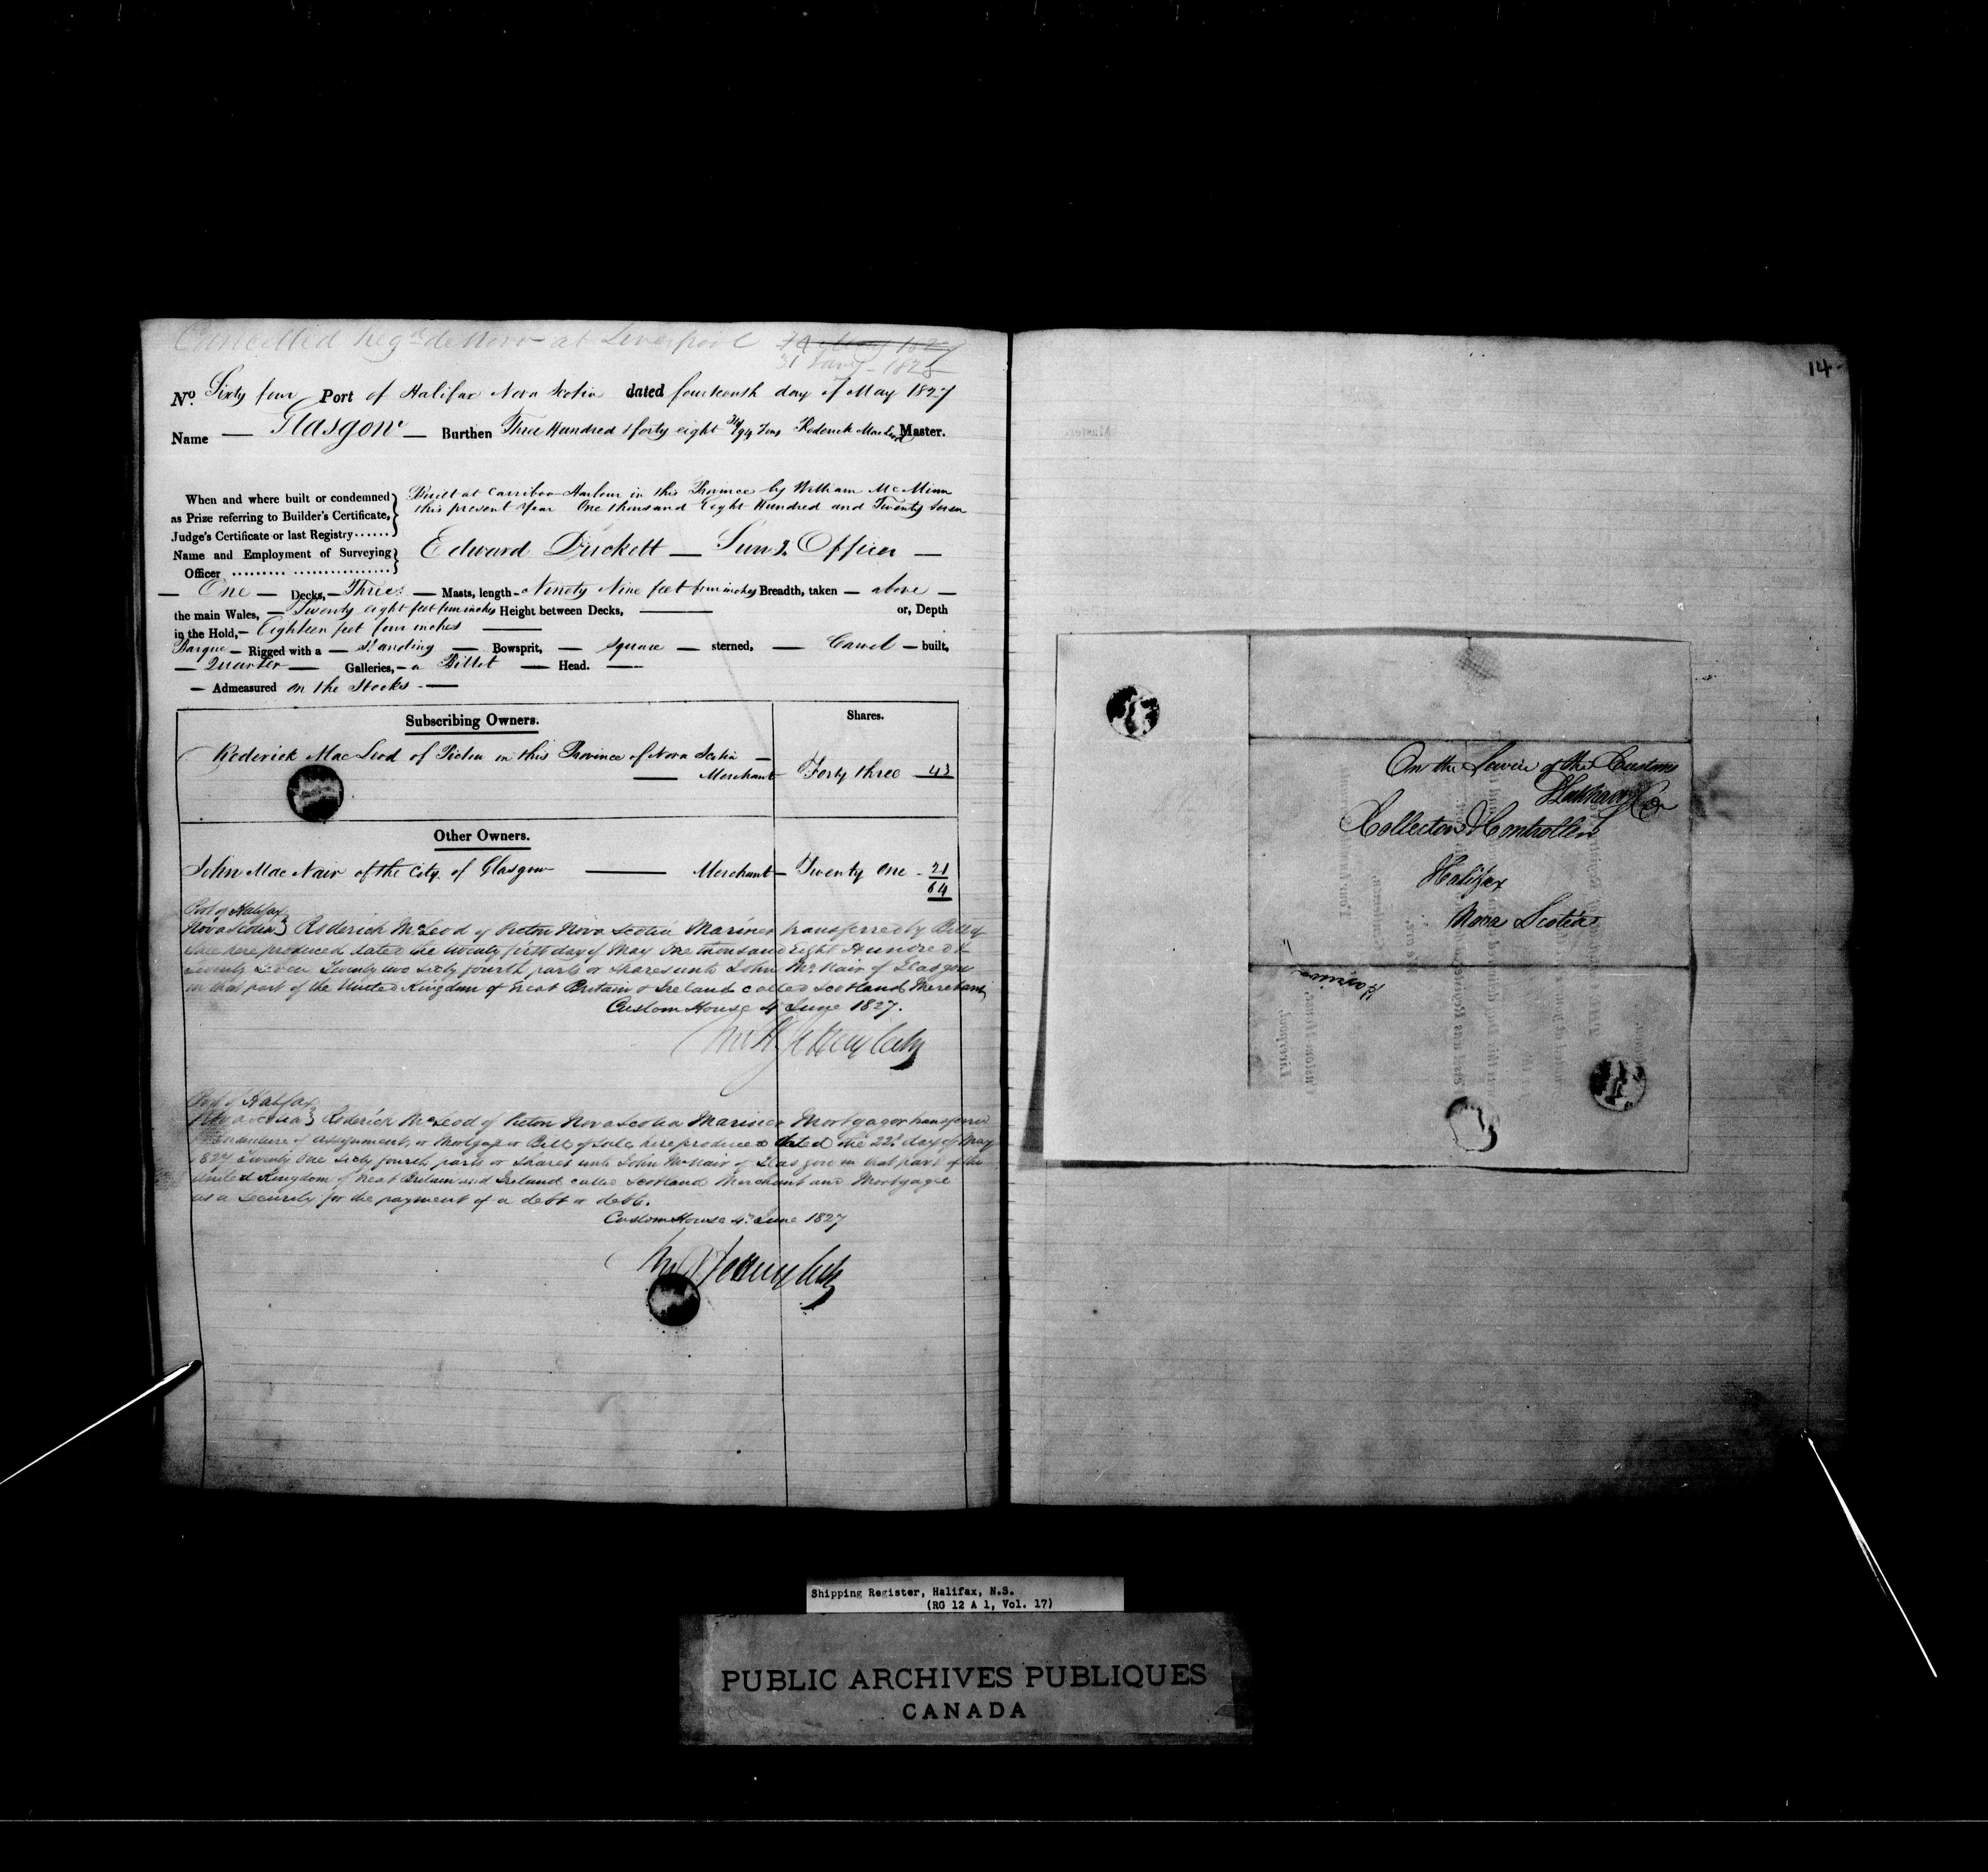 Cancelled Regd de Novo at Liverpool
31 Jany 1828
No. Sixty four Port of Halifax Nova Scotia dated fourteenth day of May 1827
Name — Glasgow — Burthen Three Hundred & forty eight 34/94 Tons Roderick MacLeod Master.
When and where built or condemned
as Prize referring to Builder's Certificate,
Judge's Certificate or last Registry......
Built at Carriboo Harbour in this Province by William McMinn
this present Year One thousand Eight Hundred and Twenty Seven
Name and Employment of Surveying
Officer
Edward Duckett — Surv.g Officer —
— One — Decks, — Three — Masts, length — Ninety Nine feet four inches Breadth, taken — above —
the main Wales, — Twenty eight feet four inches Height between Decks, —— or, Depth
in the Hold, — Eighteen feet four inches ——
Barque — Rigged with a — Standing — Bowsprit, — square — sterned, — Carvel — built,
— Quarter — Galleries, — a Billet — Head. —
— Admeasured on the Stocks —
Subscribing Owners.
Shares.
Roderick MacLeod of Pictou in this Province of Nova Scotia —
— Merchant Forty three 43
Other Owners.
John MacNair of the City of Glasgow —— Merchant — Twenty One - 21
64
Port of Halifax
Nova Scotia } Roderick McLeod of Pictou Nova Scotia Mariner transferred by Bill of
Sale here produced dated the twenty first day of May One thousand Eight Hundred &
twenty seven twenty two sixty fourth parts or shares unto John McNair of Glasgow
in that part of the United Kingdom of Great Britain & Ireland called Scotland Merchant
Custom House 4 June 1827.
Port of Halifax
Nova Scotia } Roderick McLeod of Pictou Nova Scotia Mariner Mortgagor transferred
Indenture of assignment, or Mortgage or Bill of Sale here produced dated the 22d day of May
1827 twenty One sixty fourth parts or shares unto John McNair of Glasgow in that part of the
United Kingdom of Great Britain and Ireland called Scotland Merchant and Mortgagee
as a security for the payment of a debt or debts.
Custom House 4th June 1827
14
On the Service of the Customs
Collector & Controller
Halifax
Nova Scotia
Shipping Register, Halifax, N.S.
(RG 12 A 1, Vol. 17)
PUBLIC ARCHIVES PUBLIQUES
CANADA